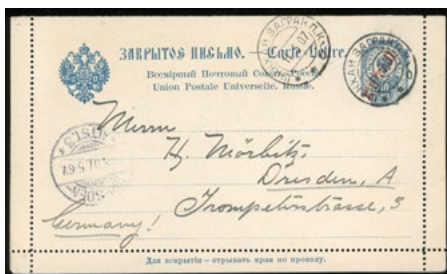 ЗАКРЫТОЕ ПИСЬМО. — Carte-Lettre.
Всемірный Почтовый Союзъ. Россія.
Union Postale Universelle. Russie.
Herrn
H. Mörbitz,
Dresden, A
Trompeterstrasse, 5
Germany!
Для вскрытія — отрывать края по проколу.